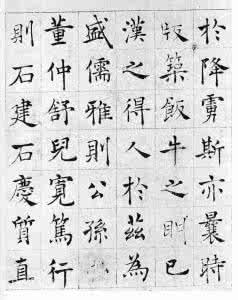 於降虜斯亦曩時
版築飯牛之明已
漢之得人於茲為
盛儒雅則公孫
董仲舒兒寬篤行
則石建石慶質直